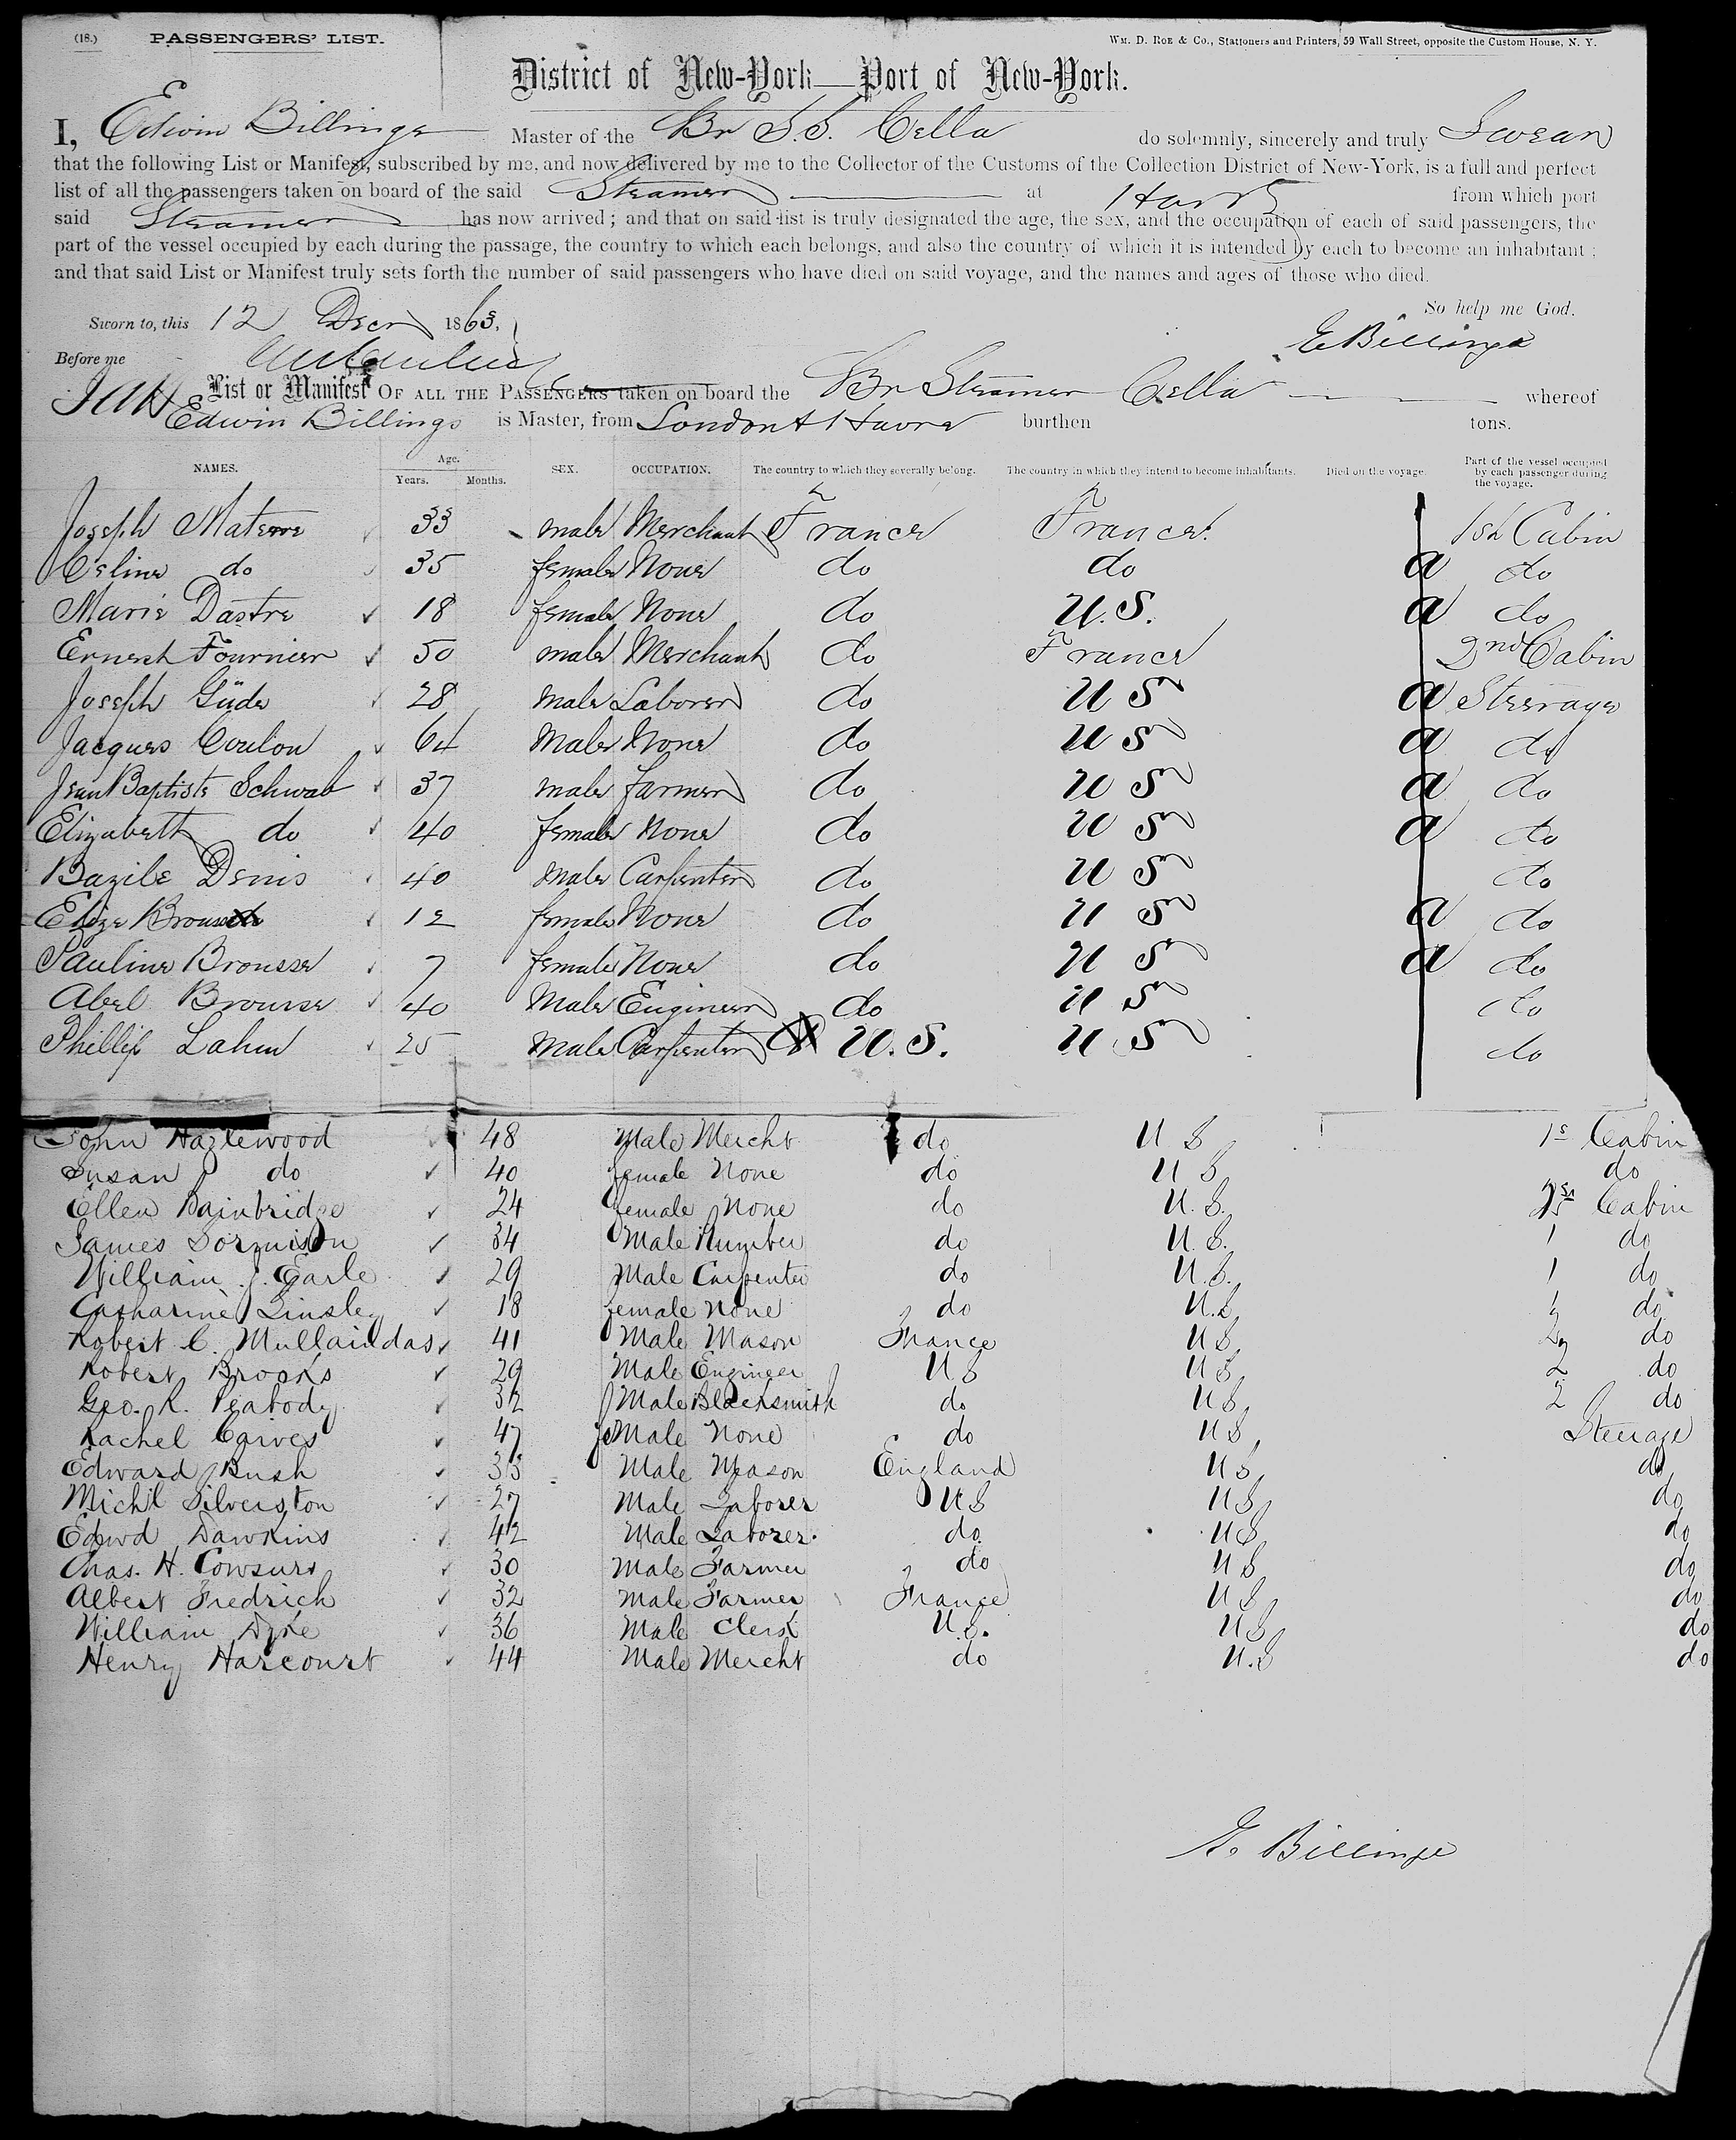 (18.) PASSENGERS' LIST. WM. D. ROE & CO., Stationers and Printers, 59 Wall Street, opposite the Custom House, N. Y.
District of New-York—Port of New-York.
I, Edwin Billinge Master of the Br S.S. Cella do solemnly, sincerely and truly Swear
that the following List or Manifest, subscribed by me, and now delivered by me to the Collector of the Customs of the Collection District of New-York, is a full and perfect
list of all the passengers taken on board of the said Steamer at Havre from which port
said Steamer has now arrived; and that on said list is truly designated the age, the sex, and the occupation of each of said passengers, the
part of the vessel occupied by each during the passage, the country to which each belongs, and also the country of which it is intended by each to become an inhabitant;
and that said List or Manifest truly sets forth the number of said passengers who have died on said voyage, and the names and ages of those who died.
So help me God.
Sworn to, this 12 Decr 1868,
E Billinge
Before me
List or Manifest OF ALL THE PASSENGERS taken on board the Br Steamer Cella whereof
Edwin Billings is Master, from London & Havre burthen tons.
NAMES. Age. Years. Months. SEX. OCCUPATION. The country to which they severally belong. The country in which they intend to become inhabitants. Died on the voyage. Part of the vessel occupied by each passenger during the voyage.
Joseph 33 male Merchant France France 1st Cabin
Celine do 35 female None do do a do
Marie Dastre 18 female None do U.S. a do
Ernest Fournier 50 male Merchant do France 2nd Cabin
Joseph Güde 28 male Laborer do U S a Steerage
Jacques Coulon 64 male None do U S a do
Jean Baptiste Schwab 37 male farmer do U S a do
Elizabeth do 40 female None do U S a do
Bazile Denis 40 male Carpenter do U S do
Elize 12 female None do U S a do
Pauline Brousse 7 female None do U S a do
Abel Brousse 40 Male Engineer do U S do
Phillip Lahm 25 male Carpenter U.S. U S do
John Hazlewood 48 Male Mercht do U S 1s Cabin
Susan do 40 female None do U S do
Ellen Bainbridge 24 female None do U.S. Cabin
James 34 Male Plumber do U.S. 1 do
William J. Earle 29 Male Carpenter do U.S. 1 do
Catharine Linsley 18 female None do U.S. do
Robert C. Mullaindas 41 Male Mason France U S 2 do
Robert Brooks 29 Male Engineer U S U S 2 do
Geo. R. Peabody 32 Male Blacksmith do U S 2 do
Rachel 47 feMale None do U S Steerage
Edward Bush 33 Male Mason England U S do
Michl Silverston 27 Male Laborer U S U S do
Edwd Dawkins 42 Male Laborer do U S do
Chas. H. 30 Male Farmer do U S do
Albert Fredrich 32 Male Farmer France U S do
William Dyke 36 Male Clerk U.S. U S do
Henry Harcourt 44 Male Mercht do U.S do
E. Billinge